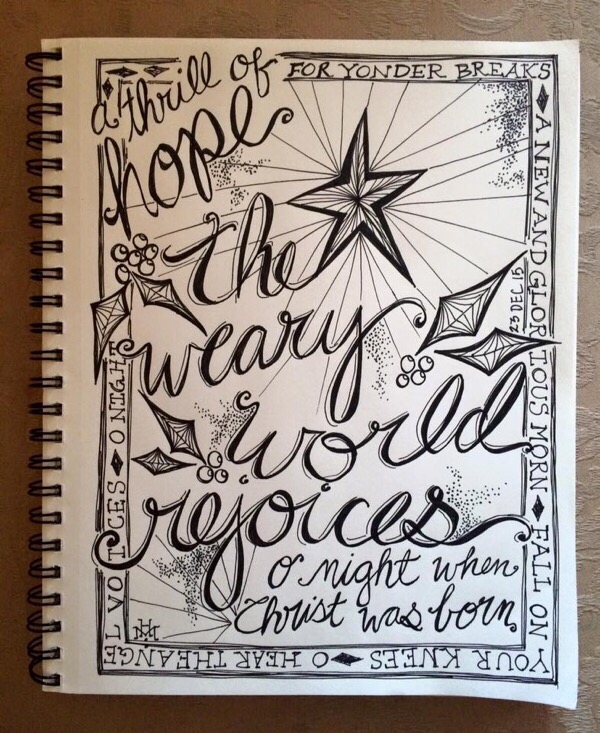 a thrill of
hope
the
weary
world
rejoices
o night when
Christ was born
FOR YONDER BREAKS
A NEW AND GLORIOUS MORN ◆ FALL ON
YOUR KNEES ◆ O HEAR THE ANGEL
VOICES ◆ O NIGHT
23 DEC 15